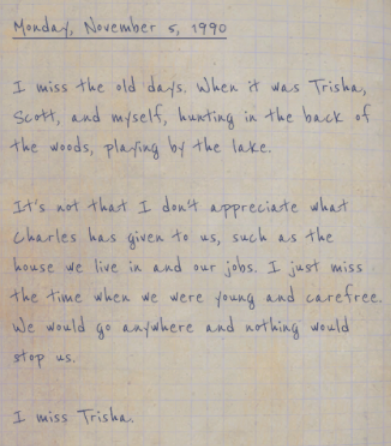 Monday, November 5, 1990
I miss the old days. When it was Trisha,
Scott, and myself, hunting in the back of
the woods, playing by the lake.
It's not that I don't appreciate what
Charles has given to us, such as the
house we live in and our jobs. I just miss
the time when we were young and carefree.
We would go anywhere and nothing would
stop us.
I miss Trisha.